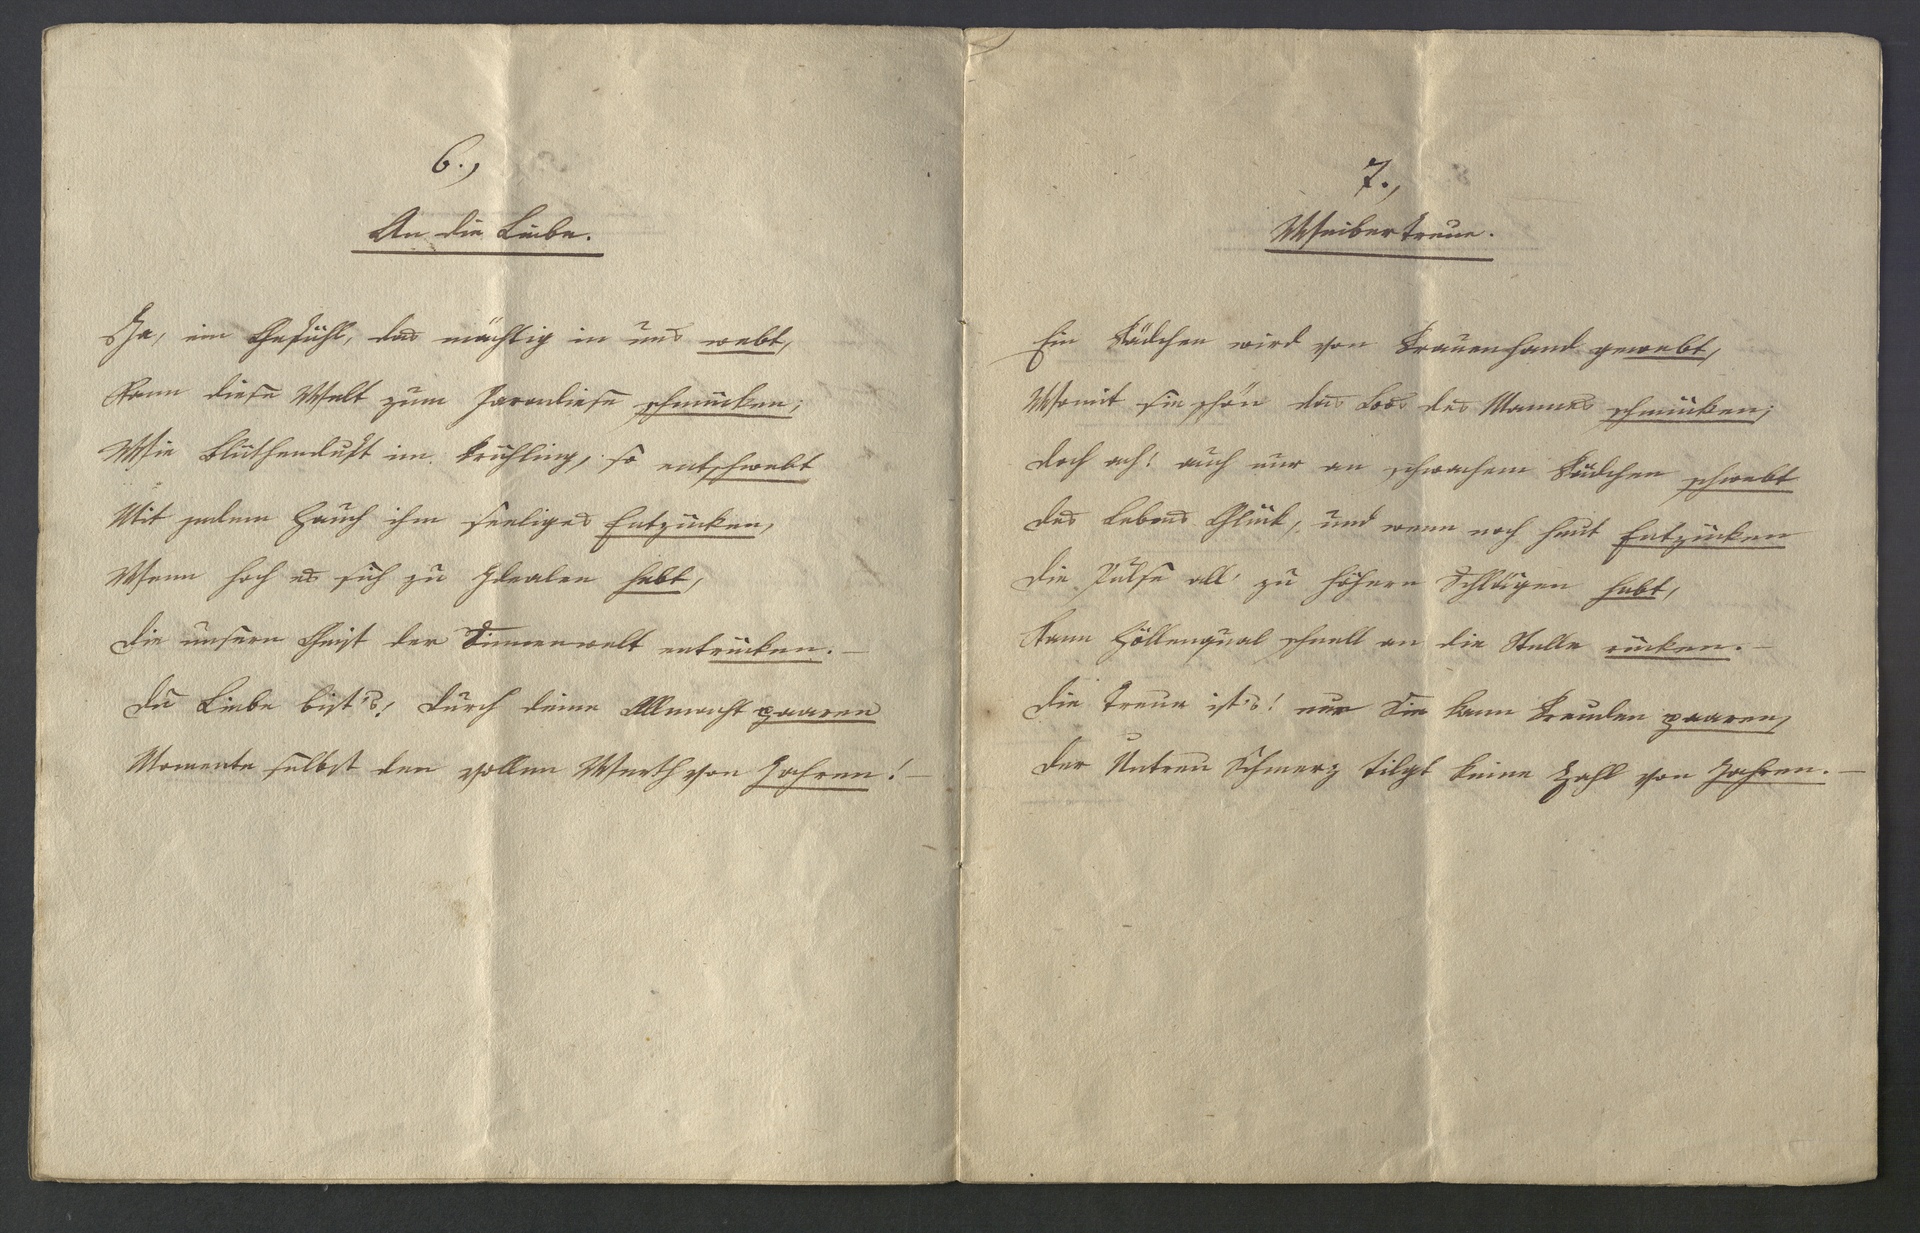 6.,
An die Liebe.
Ja, ein Gefühl, das mächtig in uns webt,
Kann diese Welt zum Paradiese schmücken;
Wie Blüthenduft im Frühling, so entschwebt
Mit jedem Hauch ihm seeliges Entzücken,
Wenn hoch es sich zu Idealen hebt,
Die unsern Geist der Sinnenwelt entrücken. –
Du Liebe bist's! durch deine Allmacht paaren
Momente selbst den vollen Werth von Jahren! –
7.,
Weibertreue.
Ein Fädchen wird von Frauenhand gewebt,
Womit sie schön das Loos des Mannes schmücken;
Doch ach! auch nur an schwachem Fädchen schwebt
Des Lebens Glück, und wenn noch heut Entzücken
Die Pulse all' zu höhern Schlägen hebt,
Kann Höllenqual schnell an die Stelle rücken. –
Die Treue ist's! nur Sie kann Freuden paaren,
Der Untreu Schmerz tilgt keine Zahl von Jahren. –